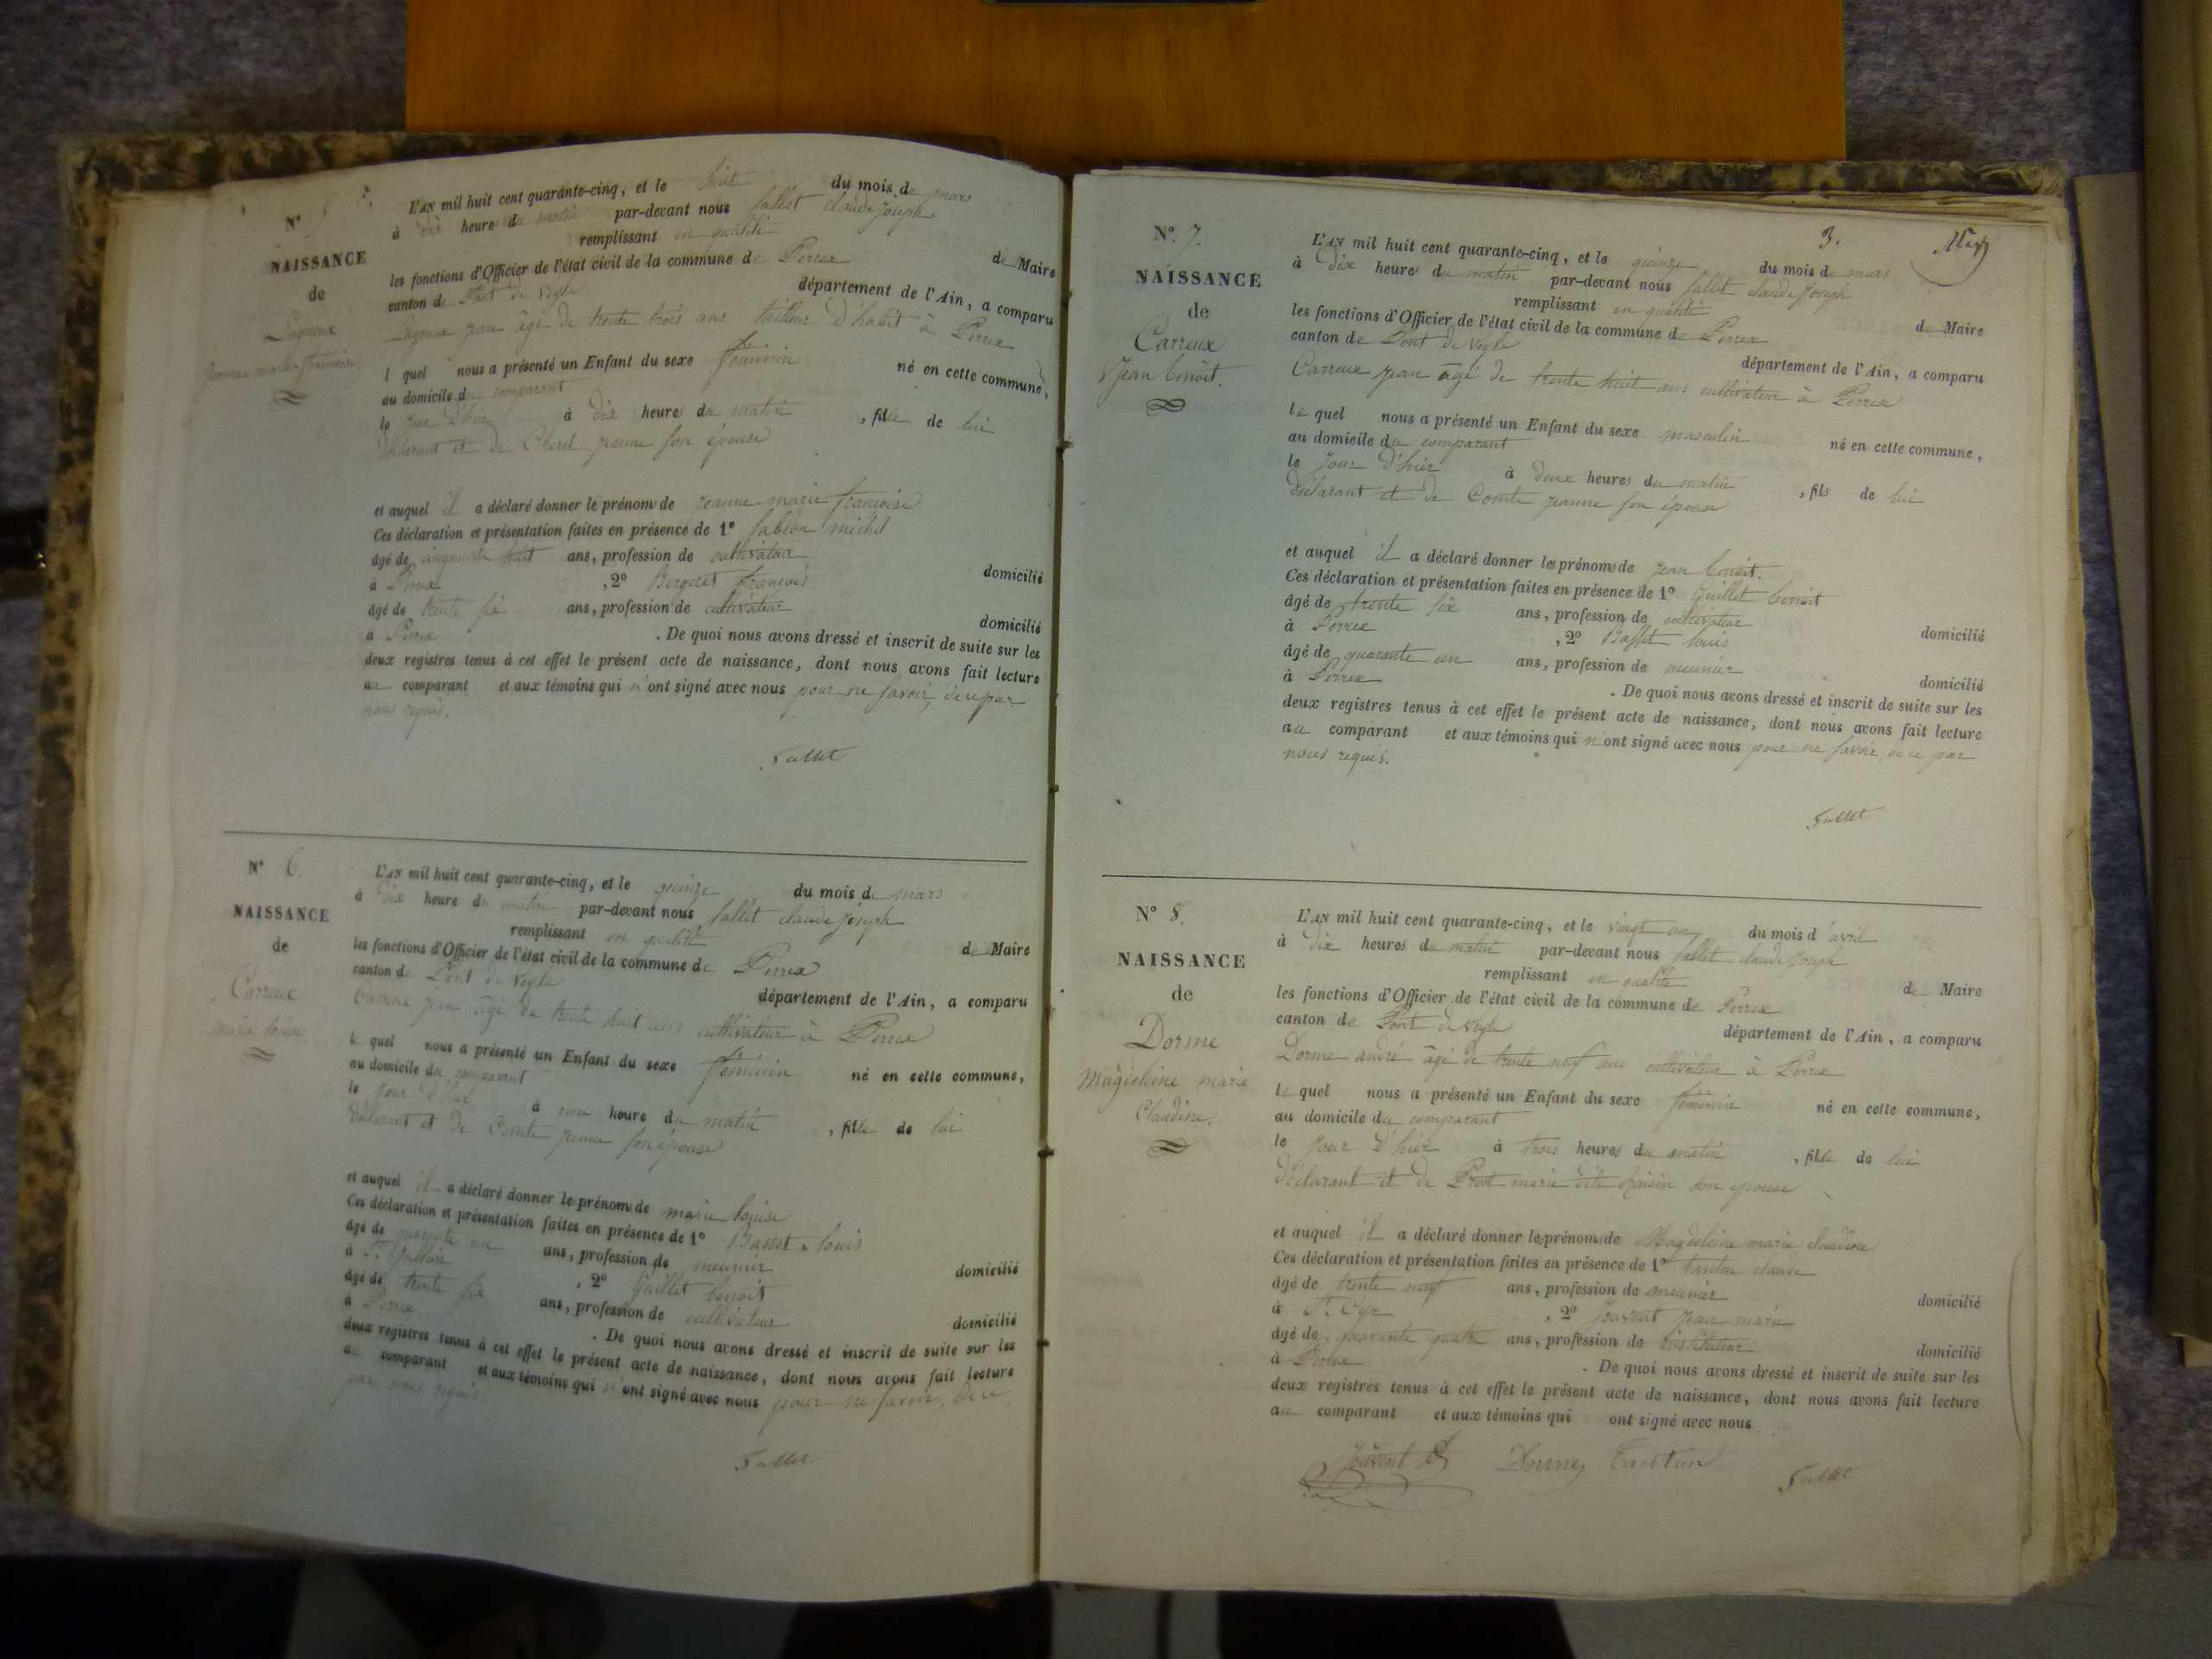 N° 5
NAISSANCE
de
Lagneux
jeanne marie françoise.
L'AN mil huit cent quarante-cinq, et le huit du mois de mars
à dix heure du matin par-devant nous fallet claude joseph
remplissant en qualité de Maire
les fonctions d'Officier de l'état civil de la commune de Perrex
canton de Pont de Veyle département de l'Ain, a comparu
Lagneux jean âgé de trente trois ans tailleur d'habit à Perrex
l quel nous a présenté un Enfant du sexe féminin né en cette commune,
au domicile du comparant
le jour d'hier à dix heures du matin, fille de lui
déclarant et de jeanne son épouse
et auquel il a déclaré donner le prénom de jeanne marie françoise
Ces déclaration et présentation faites en présence de 1° michel
âgé de huit ans, profession de cultivateur domicilié
à Perrex, 2° françois
âgé de trente six ans, profession de cultivateur domicilié
à Perrex. De quoi nous avons dressé et inscrit de suite sur les
deux registres tenus à cet effet le présent acte de naissance, dont nous avons fait lecture
au comparant et aux témoins qui n'ont signé avec nous pour ne savoir, de ce par
nous requis.
fallet
N° 6.
NAISSANCE
de
Carreux
marie louise
L'AN mil huit cent quarante-cinq, et le quinze du mois de mars
à dix heure du matin par-devant nous fallet claude joseph
remplissant en qualité de Maire
les fonctions d'Officier de l'état civil de la commune de Perrex
canton de Pont de Veyle département de l'Ain, a comparu
Carreux jean âgé de trente huit ans cultivateur à Perrex
le quel nous a présenté un Enfant du sexe féminin né en cette commune,
au domicile du comparant
le jour d'hier à une heure du matin, fille de lui
déclarant et de Comte jeanne son épouse
et auquel il a déclaré donner les prénoms de marie louise
Ces déclaration et présentation faites en présence de 1° Basset louis
âgé de quarante un ans, profession de meunier domicilié
à, 2° Guillet benoit
âgé de trente six ans, profession de cultivateur domicilié
à Perrex. De quoi nous avons dressé et inscrit de suite sur les
deux registres tenus à cet effet le présent acte de naissance, dont nous avons fait lecture
au comparant et aux témoins qui n'ont signé avec nous pour ne savoir, de ce
par nous requis.
fallet
3.
N° 7.
NAISSANCE
de
Carreux
jean benoit.
L'AN mil huit cent quarante-cinq, et le quinze du mois de mars
à dix heures du matin par-devant nous fallet claude joseph
remplissant en qualité de Maire
les fonctions d'Officier de l'état civil de la commune de Perrex
canton de Pont de Veyle département de l'Ain, a comparu
Carreux jean âgé de trente huit ans cultivateur à Perrex
le quel nous a présenté un Enfant du sexe masculin né en cette commune,
au domicile du comparant
le jour d'hier à deux heures du matin, fils de lui
déclarant et de Comte jeanne son épouse
et auquel il a déclaré donner les prénoms de jean benoit.
Ces déclaration et présentation faites en présence de 1° Guillet benoit
âgé de trente six ans, profession de cultivateur domicilié
à Perrex, 2° Basset louis
âgé de quarante un ans, profession de meunier domicilié
à Perrex. De quoi nous avons dressé et inscrit de suite sur les
deux registres tenus à cet effet le présent acte de naissance, dont nous avons fait lecture
au comparant et aux témoins qui n'ont signé avec nous pour ne savoir, de ce par
nous requis.
fallet
N° 8.
NAISSANCE
de
Dorme
Magdeleine marie
Claudine.
L'AN mil huit cent quarante-cinq, et le vingt un du mois d'avril
à dix heures du matin par-devant nous fallet claude joseph
remplissant en qualité de Maire
les fonctions d'Officier de l'état civil de la commune de Perrex
canton de Pont de Veyle département de l'Ain, a comparu
Dorme andré âgé de trente neuf ans cultivateur à Perrex
le quel nous a présenté un Enfant du sexe féminin né en cette commune,
au domicile du comparant
le jour d'hier à trois heures du matin, fille de lui
déclarant et de Prost marie dite son épouse
et auquel il a déclaré donner les prénoms de Magdeleine marie claudine
Ces déclaration et présentation faites en présence de 1° claude
âgé de trente neuf ans, profession de meunier domicilié
à St. Cyr, 2° Jouvent jean marie
âgé de quarante quatre ans, profession de instituteur domicilié
à Perrex. De quoi nous avons dressé et inscrit de suite sur les
deux registres tenus à cet effet le présent acte de naissance, dont nous avons fait lecture
au comparant et aux témoins qui ont signé avec nous
Jouvent Dorme fallet